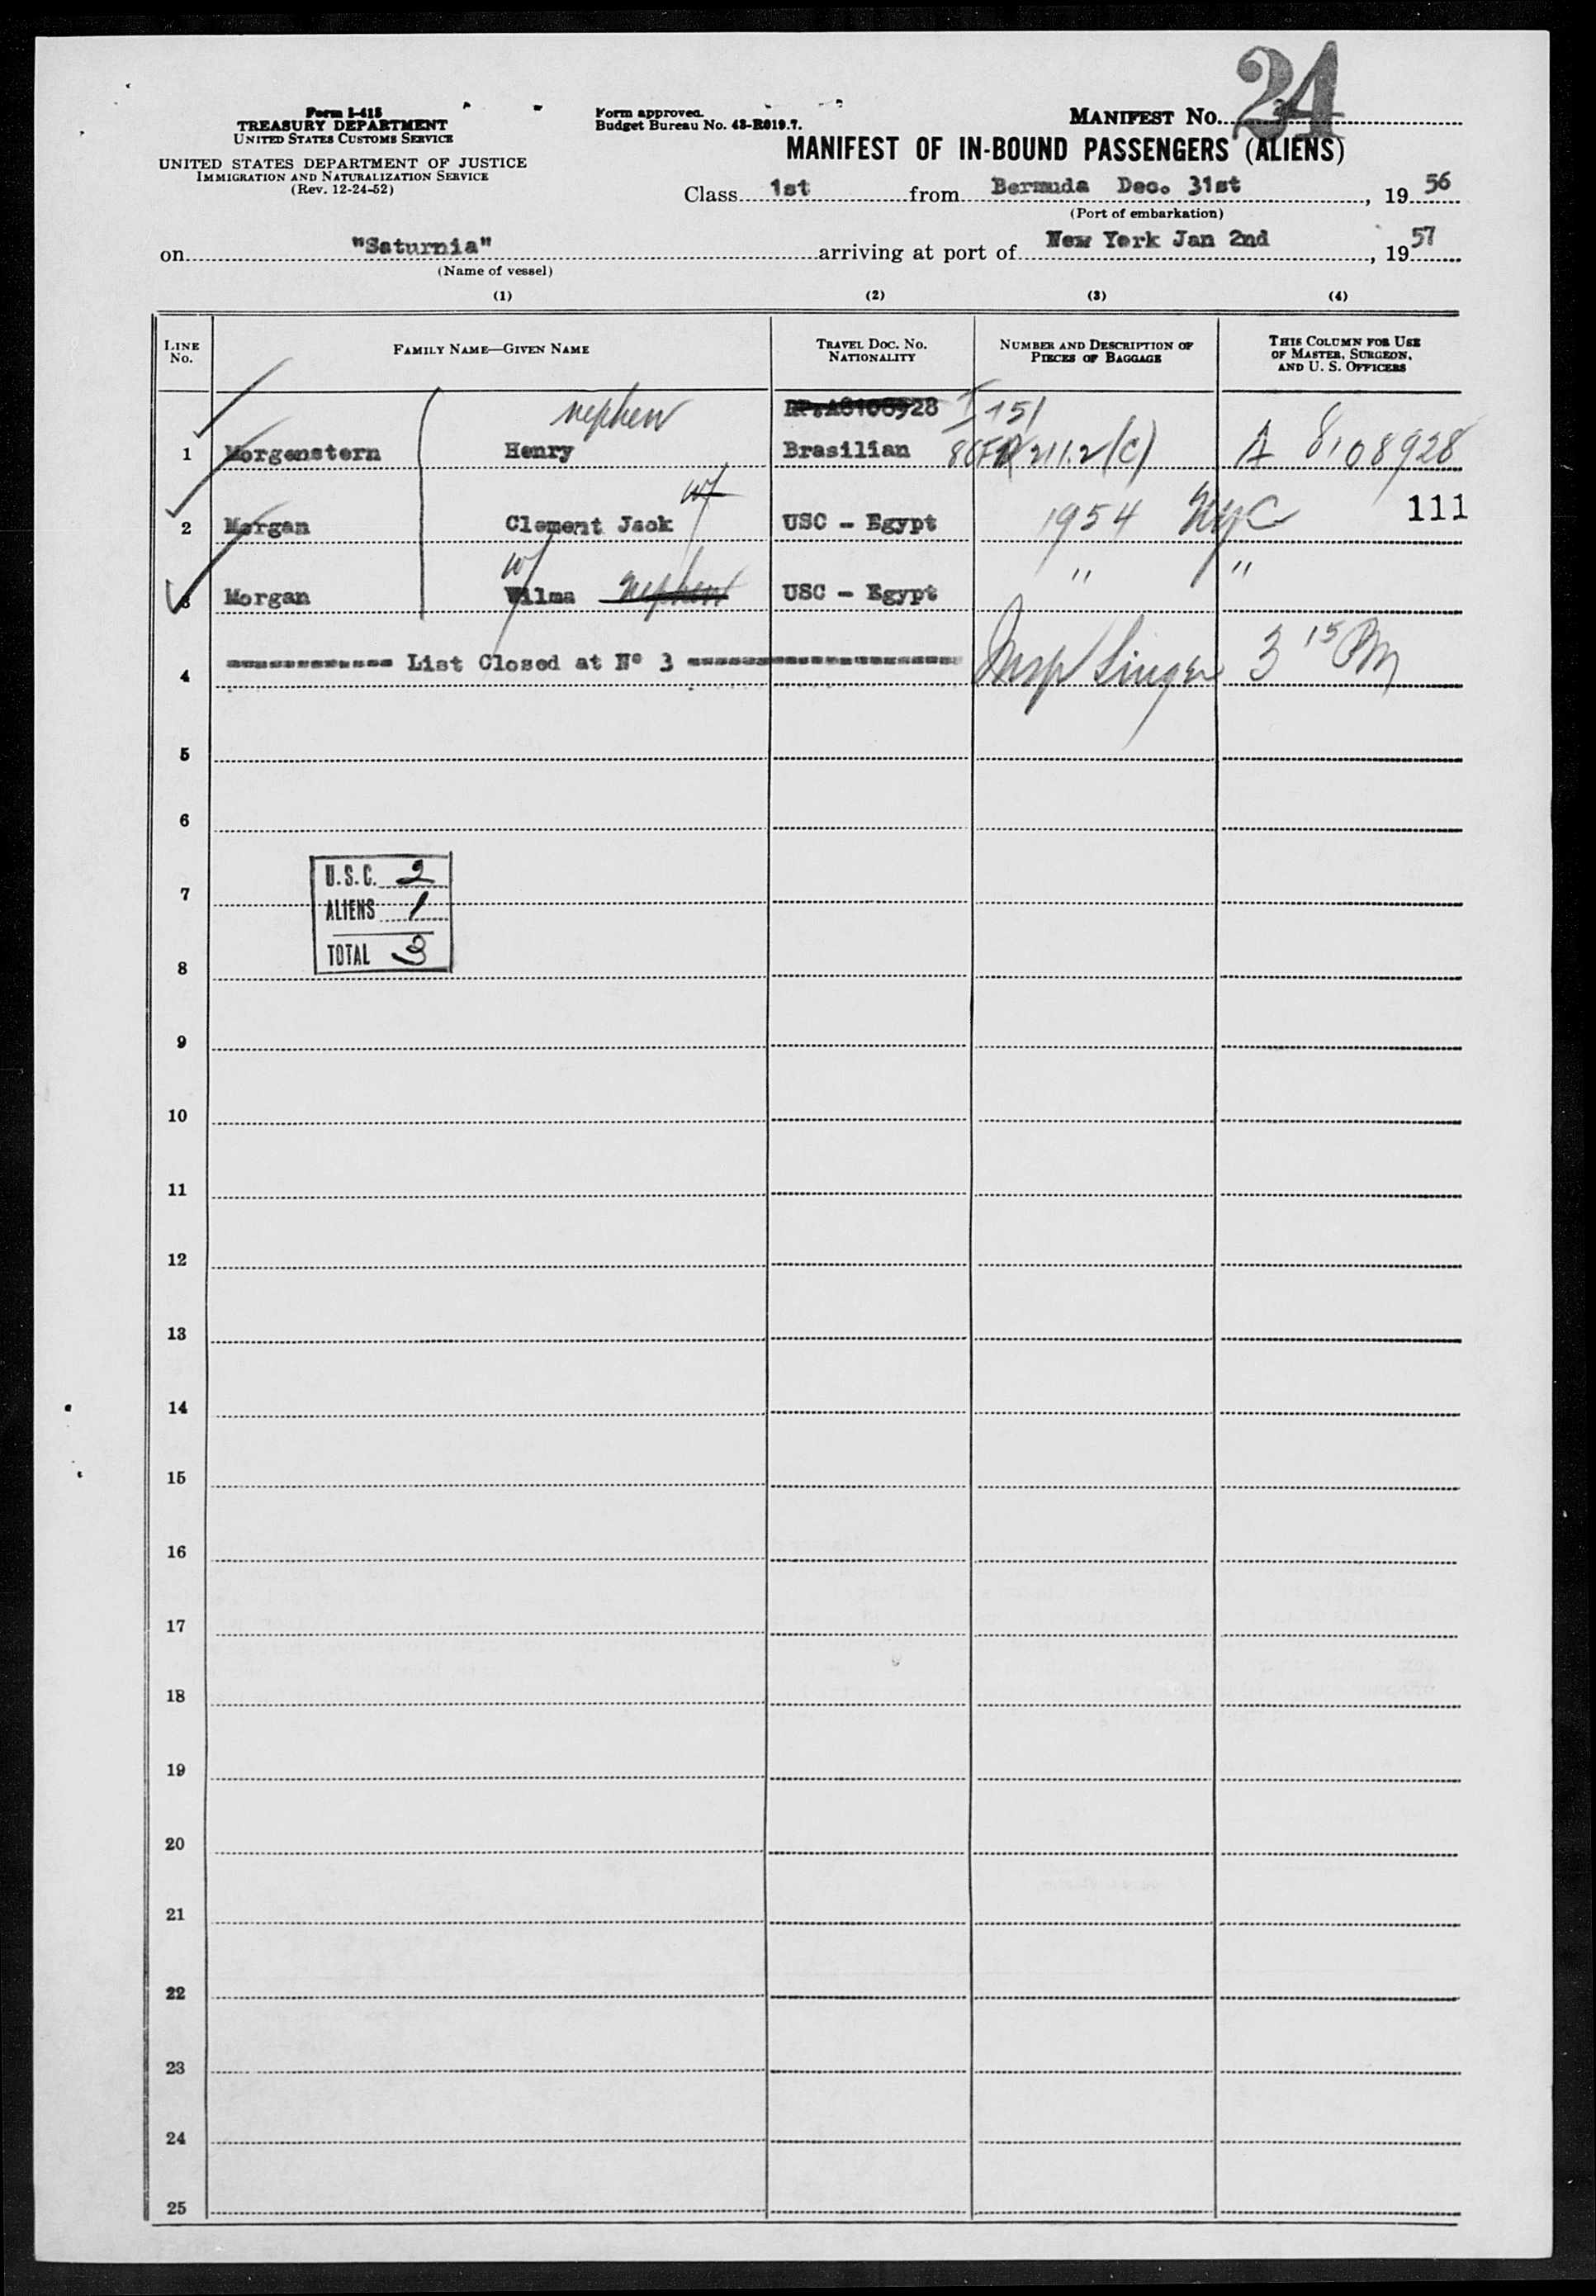 24
Form I-418
TREASURY DEPARTMENT
UNITED STATES CUSTOMS SERVICE
UNITED STATES DEPARTMENT OF JUSTICE
IMMIGRATION AND NATURALIZATION SERVICE
(Rev. 12-24-52)
Form approved.
Budget Bureau No. 43-R019.7.
MANIFEST No.
MANIFEST OF IN-BOUND PASSENGERS (ALIENS)
Class 1st from Bermuda Dec. 31st, 19 56
(Port of embarkation)
on "Saturnia" arriving at port of New York Jan 2nd, 19 57
(Name of vessel)
(1) (2) (3) (4)
LINE No. FAMILY NAME—GIVEN NAME TRAVEL DOC. No. NATIONALITY NUMBER AND DESCRIPTION OF PIECES OF BAGGAGE THIS COLUMN FOR USE OF MASTER, SURGEON, AND U. S. OFFICERS
nephew RP.A8108928 I 151
1 Morgenstern Henry Brasilian 8CFR 211.2(C) A 8108928
w/
2 Morgan Clement Jack USC - Egypt 1954 NYC 111
w/
3 Morgan Wilma nephew USC - Egypt " "
4 ------------ List Closed at Nº 3 -------------------- Insp Singer 3 15 PM
5
6
U.S.C. 2
7
ALIENS 1
TOTAL 3
8
9
10
11
12
13
14
15
16
17
18
19
20
21
22
23
24
25